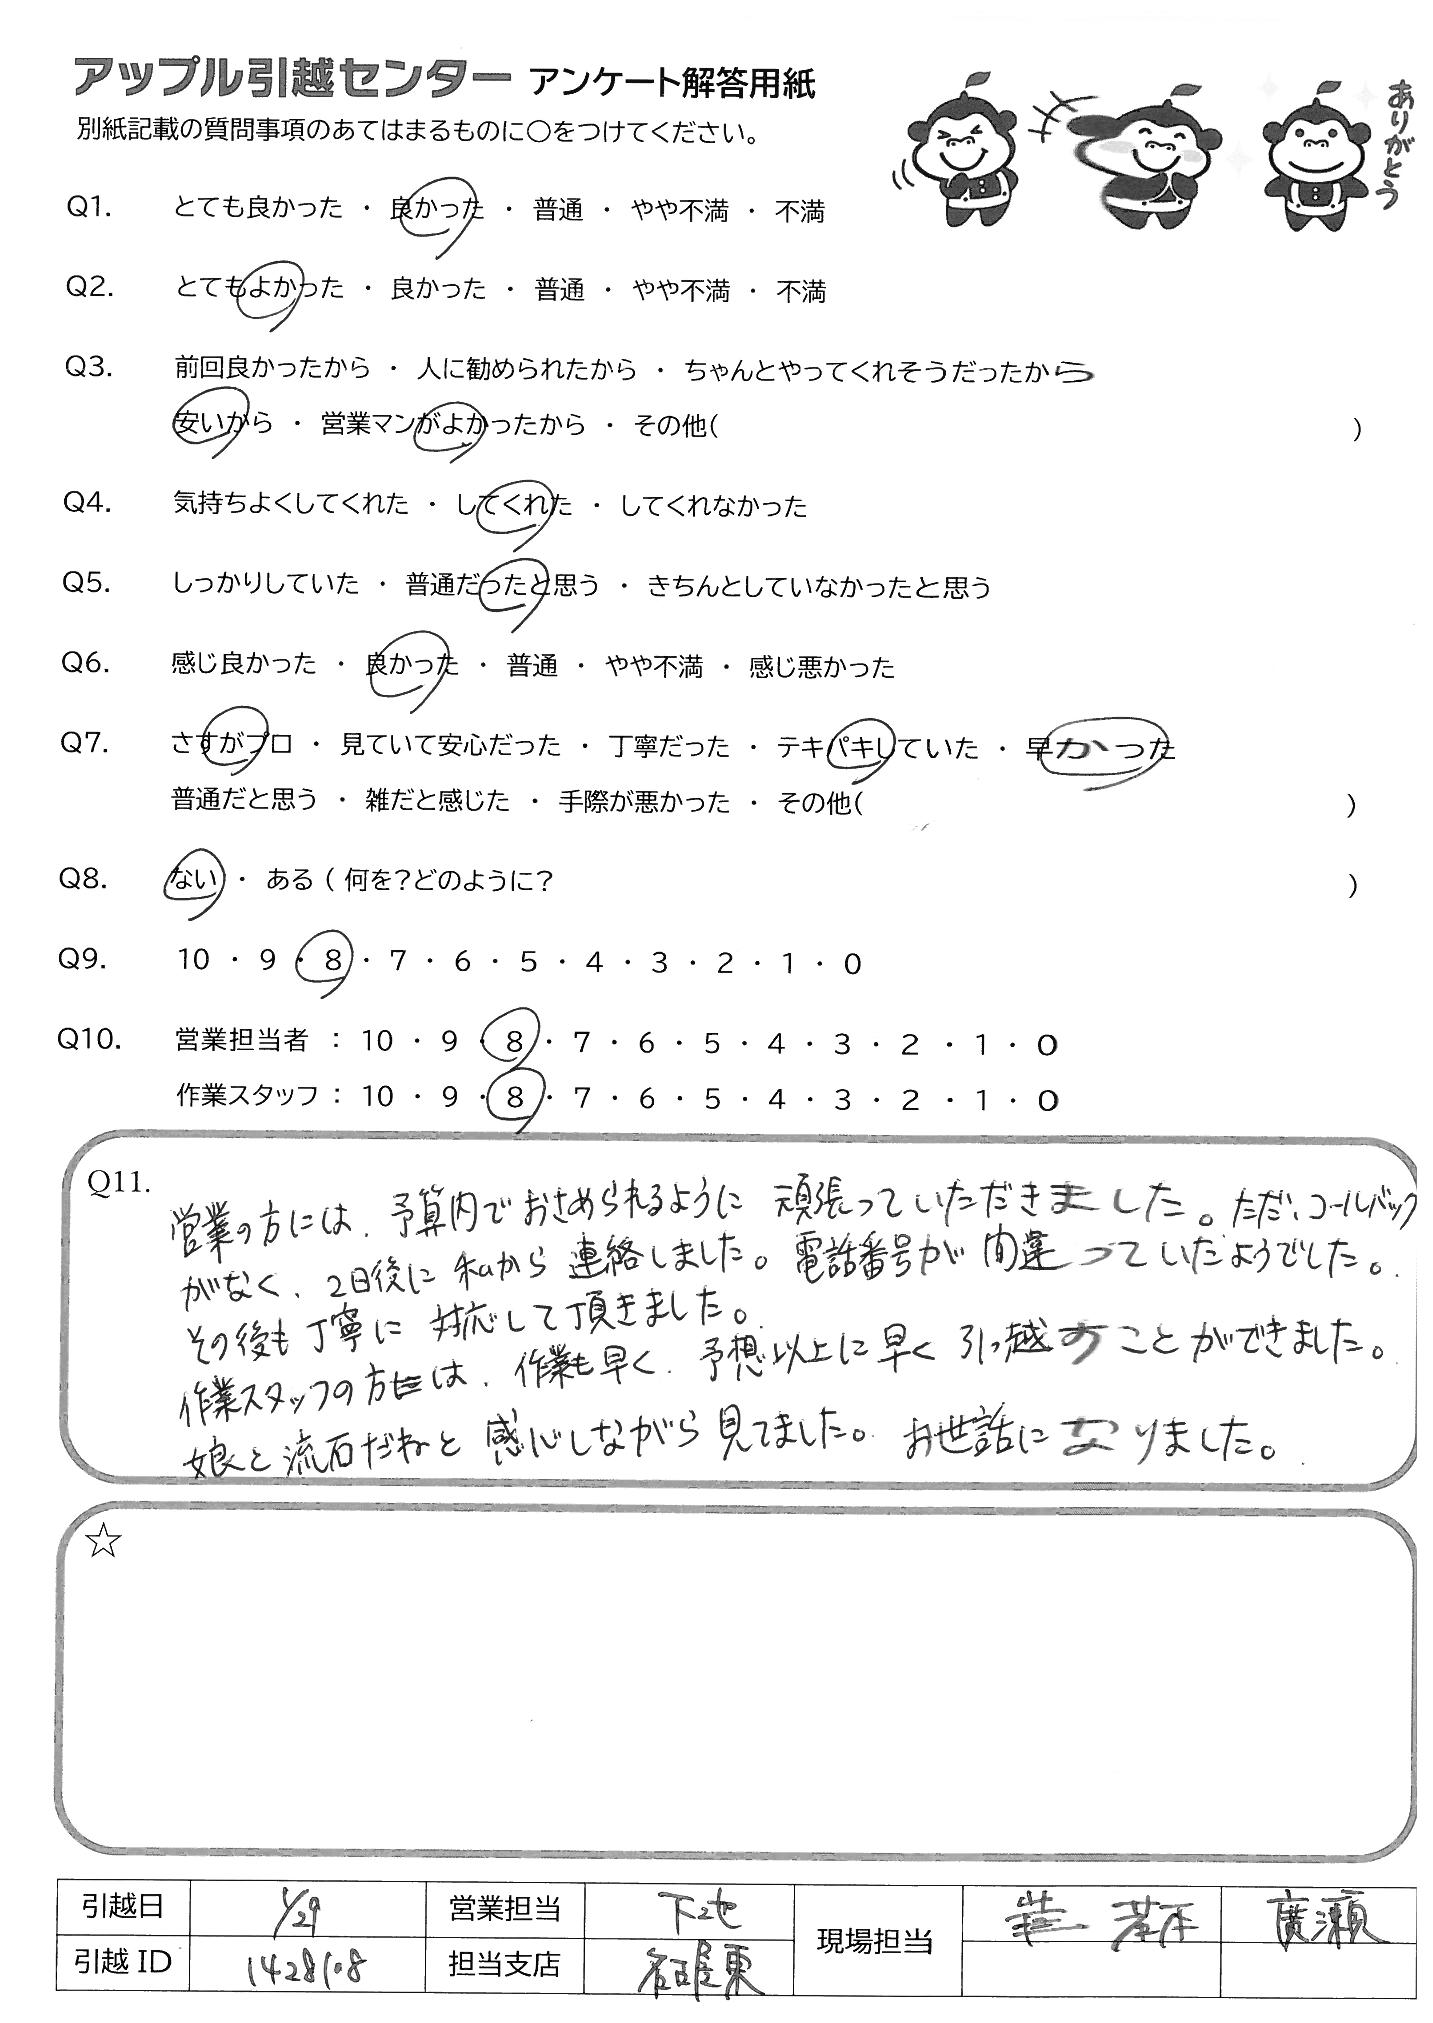 アップル引越センター アンケート解答用紙
別紙記載の質問事項のあてはまるものに○をつけてください。
ありがとう
Q1. とても良かった ・ 良かった ・ 普通 ・ やや不満 ・ 不満
Q2. とてもよかった ・ 良かった ・ 普通 ・ やや不満 ・ 不満
Q3. 前回良かったから ・ 人に勧められたから ・ ちゃんとやってくれそうだったから
安いから ・ 営業マンがよかったから ・ その他( )
Q4. 気持ちよくしてくれた ・ してくれた ・ してくれなかった
Q5. しっかりしていた ・ 普通だったと思う ・ きちんとしていなかったと思う
Q6. 感じ良かった ・ 良かった ・ 普通 ・ やや不満 ・ 感じ悪かった
Q7. さすがプロ ・ 見ていて安心だった ・ 丁寧だった ・ テキパキしていた ・ 早かった
普通だと思う ・ 雑だと感じた ・ 手際が悪かった ・ その他( )
Q8. ない ・ ある ( 何を?どのように? )
Q9. 10 ・ 9 ・ 8 ・ 7 ・ 6 ・ 5 ・ 4 ・ 3 ・ 2 ・ 1 ・ 0
Q10. 営業担当者 : 10 ・ 9 ・ 8 ・ 7 ・ 6 ・ 5 ・ 4 ・ 3 ・ 2 ・ 1 ・ 0
作業スタッフ : 10 ・ 9 ・ 8 ・ 7 ・ 6 ・ 5 ・ 4 ・ 3 ・ 2 ・ 1 ・ 0
Q11.
営業の方には、予算内でおさめられるように 頑張っていただきました。ただ、コールバック
がなく、2日後に私から連絡しました。電話番号が間違っていたようでした。
その後も丁寧に対応して頂きました。
作業スタッフの方には、作業も早く、予想以上に早く引っ越すことができました。
娘と流石だねと感心しながら見てました。お世話になりました。
☆
引越日 1/29 営業担当 下地 現場担当 廣瀬
引越 ID 1428108 担当支店 名古屋東